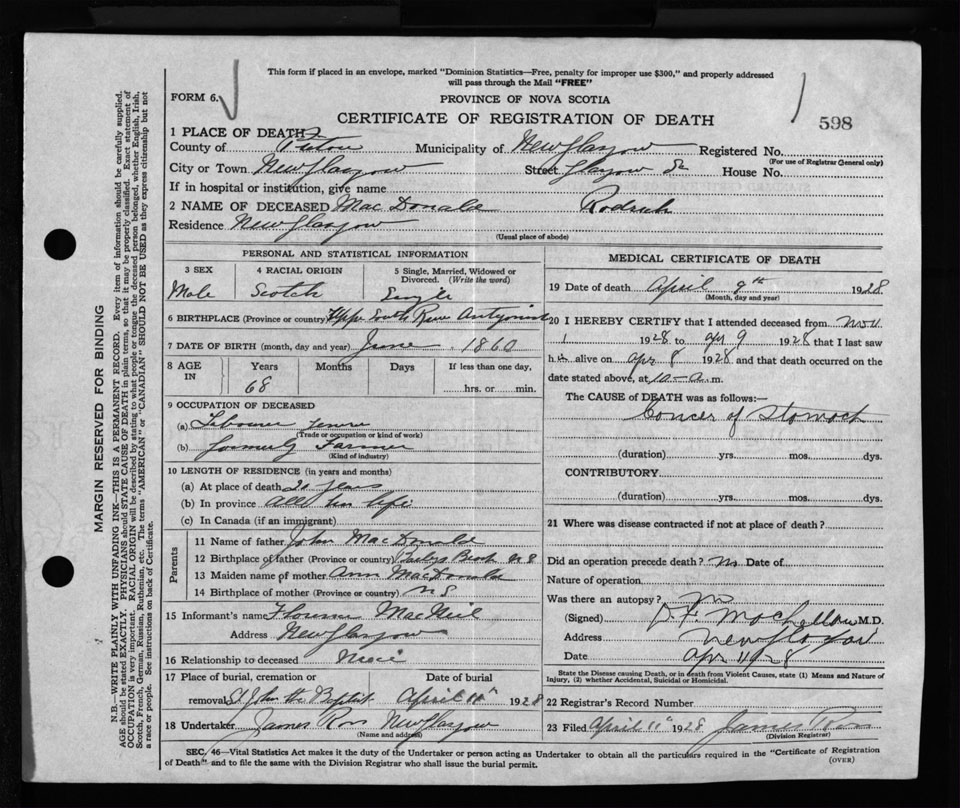 This form if placed in an envelope, marked "Dominion Statistics—Free, penalty for improper use $300," and properly addressed
will pass through the Mail "FREE"
FORM 6.
PROVINCE OF NOVA SCOTIA
CERTIFICATE OF REGISTRATION OF DEATH
598
1 PLACE OF DEATH
County of Pictou Municipality of New Glasgow Registered No.
(For use of Registrar General only)
City or Town New Glasgow Street Glasgow St House No.
If in hospital or institution, give name
2 NAME OF DECEASED MacDonald Rodrick
Residence New Glasgow
(Usual place of abode)
PERSONAL AND STATISTICAL INFORMATION
3 SEX 4 RACIAL ORIGIN 5 Single, Married, Widowed or Divorced. (Write the word)
Male Scotch Single
6 BIRTHPLACE (Province or country) Upper South River Antigonish
7 DATE OF BIRTH (month, day and year) June 1860
8 AGE IN Years Months Days If less than one day,
68 hrs. or min.
9 OCCUPATION OF DECEASED
(a) Labourer
(Trade or occupation or kind of work)
(b) Formerly Farmer
(Kind of industry)
10 LENGTH OF RESIDENCE (in years and months)
(a) At place of death 20 years
(b) In province All his life
(c) In Canada (if an immigrant)
Parents
11 Name of father John MacDonald
12 Birthplace of father (Province or country) Baileys Brook N S
13 Maiden name of mother Ann MacDonald
14 Birthplace of mother (Province or country) N S
15 Informant's name Florence MacNeil
Address New Glasgow
16 Relationship to deceased Niece
17 Place of burial, cremation or removal Date of burial
St John the Baptist April 11th 1928
18 Undertaker James Ross New Glasgow
(Name and address)
MEDICAL CERTIFICATE OF DEATH
19 Date of death April 9th 1928
(Month, day and year)
20 I HEREBY CERTIFY that I attended deceased from Nov
1 1928 to Apr 9 1928 that I last saw
h im alive on Apr 8 1928 and that death occurred on the
date stated above, at 10-a m.
The CAUSE of DEATH was as follows:—
Cancer of Stomach
(duration) yrs. mos. dys.
CONTRIBUTORY
(duration) yrs. mos. dys.
21 Where was disease contracted if not at place of death?
Did an operation precede death? No Date of
Nature of operation
Was there an autopsy? No
(Signed) M.D.
Address New Glasgow
Date Apr 11 1928
State the Disease causing Death, or in death from Violent Causes, state (1) Means and Nature of
Injury, (2) whether Accidental, Suicidal or Homicidal.
22 Registrar's Record Number
23 Filed April 11th 1928 James Ross
(Division Registrar)
SEC. 46—Vital Statistics Act makes it the duty of the Undertaker or person acting as Undertaker to obtain all the particulars required in the "Certificate of Registration
of Death" and to file the same with the Division Registrar who shall issue the burial permit.
(OVER)
MARGIN RESERVED FOR BINDING
N.B.—WRITE PLAINLY WITH UNFADING INK—THIS IS A PERMANENT RECORD. Every item of information should be carefully supplied.
AGE should be stated EXACTLY. PHYSICIANS should STATE CAUSE OF DEATH in plain terms, so that it may be properly classified. Exact statement of
OCCUPATION is very important. RACIAL ORIGIN will be described by stating to what people or tongue the deceased person belonged, whether English, Irish,
Scotch, French, German, Russian, Ruthenian, etc. The terms "AMERICAN" or "CANADIAN" SHOULD NOT BE USED as they express citizenship but not
a race or people. See instructions on back of Certificate.